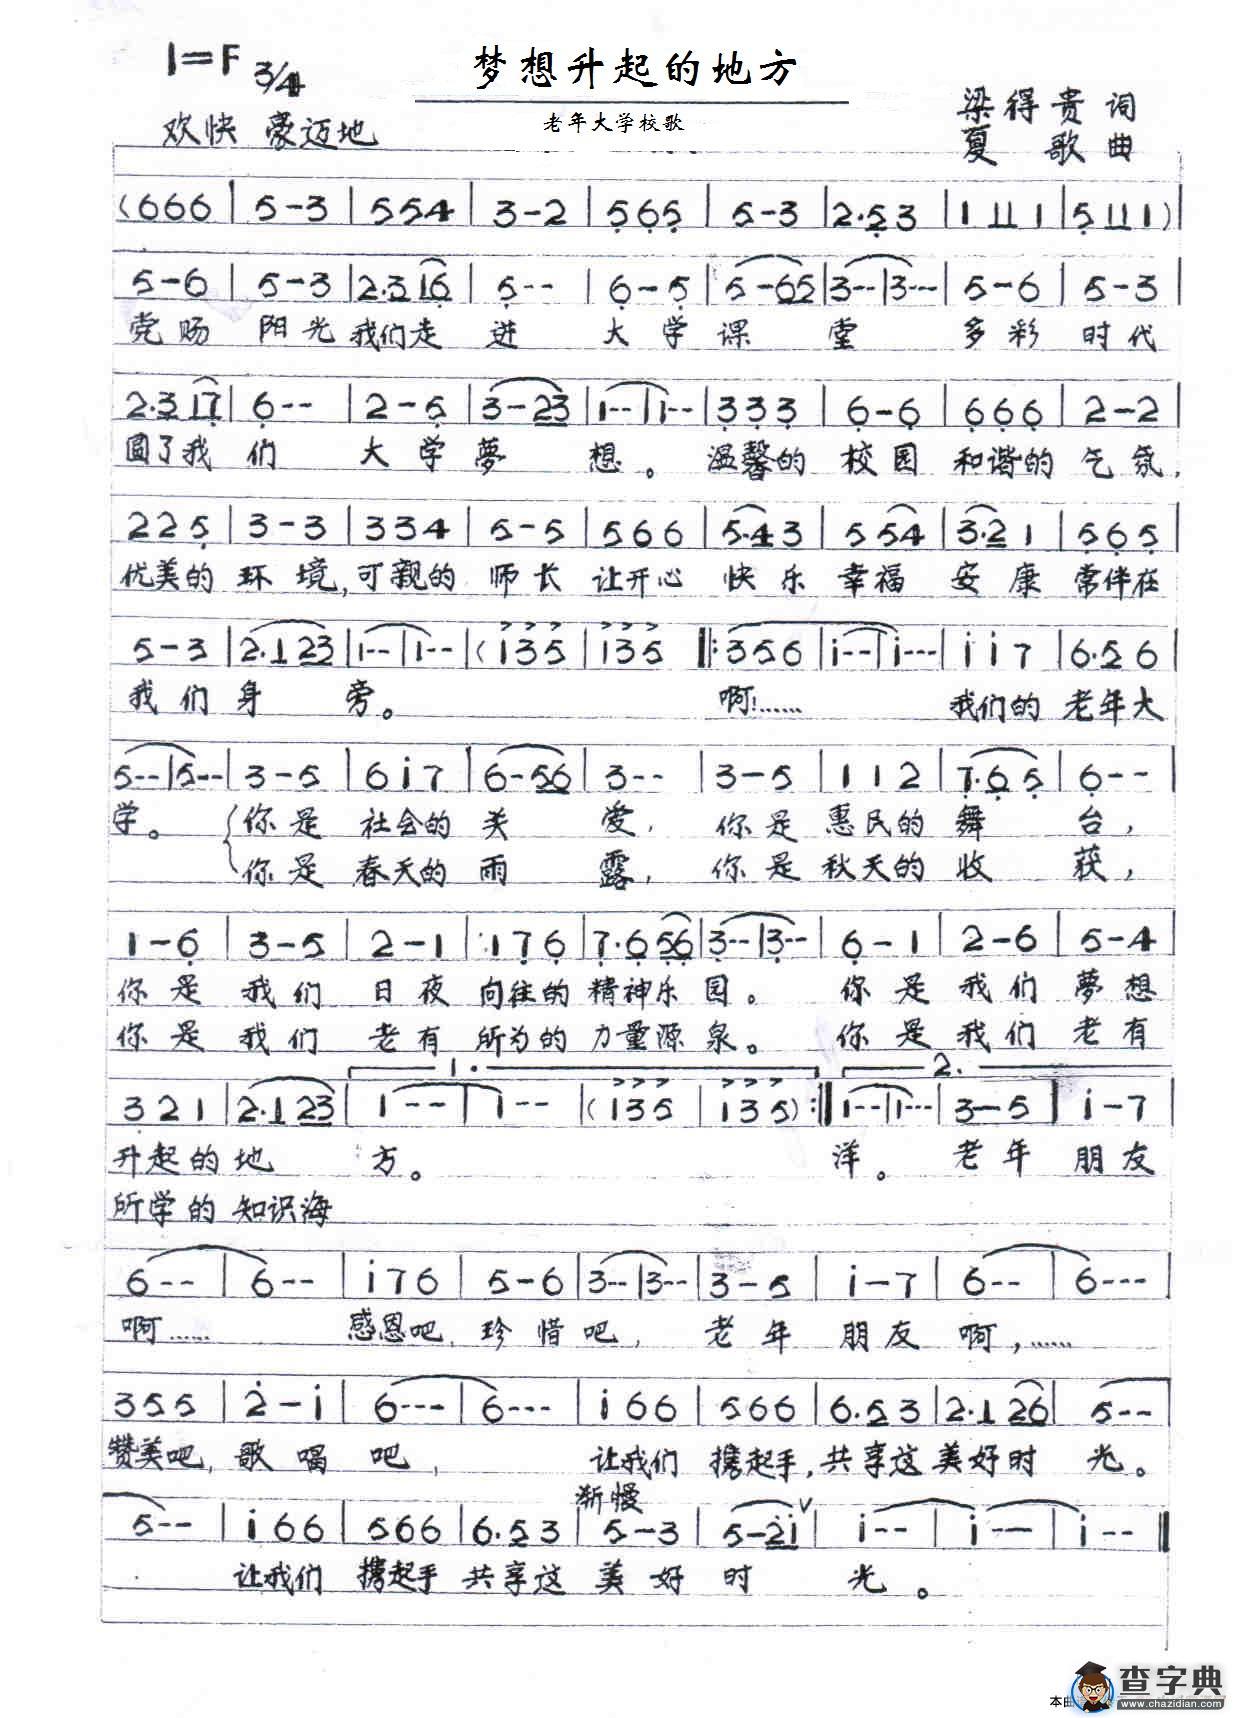 1=F 3/4
梦想升起的地方
老年大学校歌
欢快 豪迈地
梁得贵 词
夏 歌 曲
(666 | 5-3 | 554 | 3-2 | 565 | 5-3 | 2·53 | 1 11 1 | 5 11 1)
5-6 | 5-3 | 2·316 | 5-- | 6-5 | 5-65 | 3-- | 3-- | 5-6 | 5-3
党赐 阳光 我们走 进 大学 课 堂 多彩 时代
2·317 | 6-- | 2-5 | 3-23 | 1-- | 1-- | 333 | 6-6 | 666 | 2-2
圆了我 们 大学 夢 想。 温馨的 校园 和谐的 气氛,
225 | 3-3 | 334 | 5-5 | 566 | 5·43 | 554 | 3·21 | 565
优美的 环境,可亲的 师长 让开心 快乐 幸福 安康 常伴在
5-3 | 2·123 | 1-- | 1-- | (135 | 135 ‖: 356 | i-- | i-- | ii7 | 6·56
我们 身 旁。 啊!…… 我们的 老年大
5-- | 5-- | 3-5 | 6i7 | 6-56 | 3-- | 3-5 | 112 | 7·65 | 6--
学。 你是 社会的 关 爱, 你是 惠民的 舞 台,
你是 春天的 雨 露, 你是 秋天的 收 获,
1-6 | 3-5 | 2-1 | 176 | 7·656 | 3-- | 3-- | 6-1 | 2-6 | 5-4
你是 我们 日夜 向往的 精神乐 园。 你是 我们 夢想
你是 我们 老有 所为的 力量源 泉。 你是 我们 老有
1. 2.
321 | 2·123 | 1-- | 1-- | (135 | 135) :‖ 1-- | 1-- | 3-5 | i-7
升起的 地 方。 洋。 老年 朋友
所学的 知识海
6-- | 6-- | i76 | 5-6 | 3-- | 3-- | 3-5 | i-7 | 6-- | 6---
啊…… 感恩吧, 珍惜吧, 老年 朋友 啊,……
355 | 2-i | 6--- | 6--- | i66 | 566 | 6·53 | 2·126 | 5--
赞美吧, 歌唱 吧, 让我们 携起手, 共享这 美好时 光。
渐慢
5-- | i66 | 566 | 6·53 | 5-3 | 5-2i ∨ | i-- | i-- | i-- ‖
让我们 携起手 共享这 美好 时 光。
查字典
www.chazidian.com